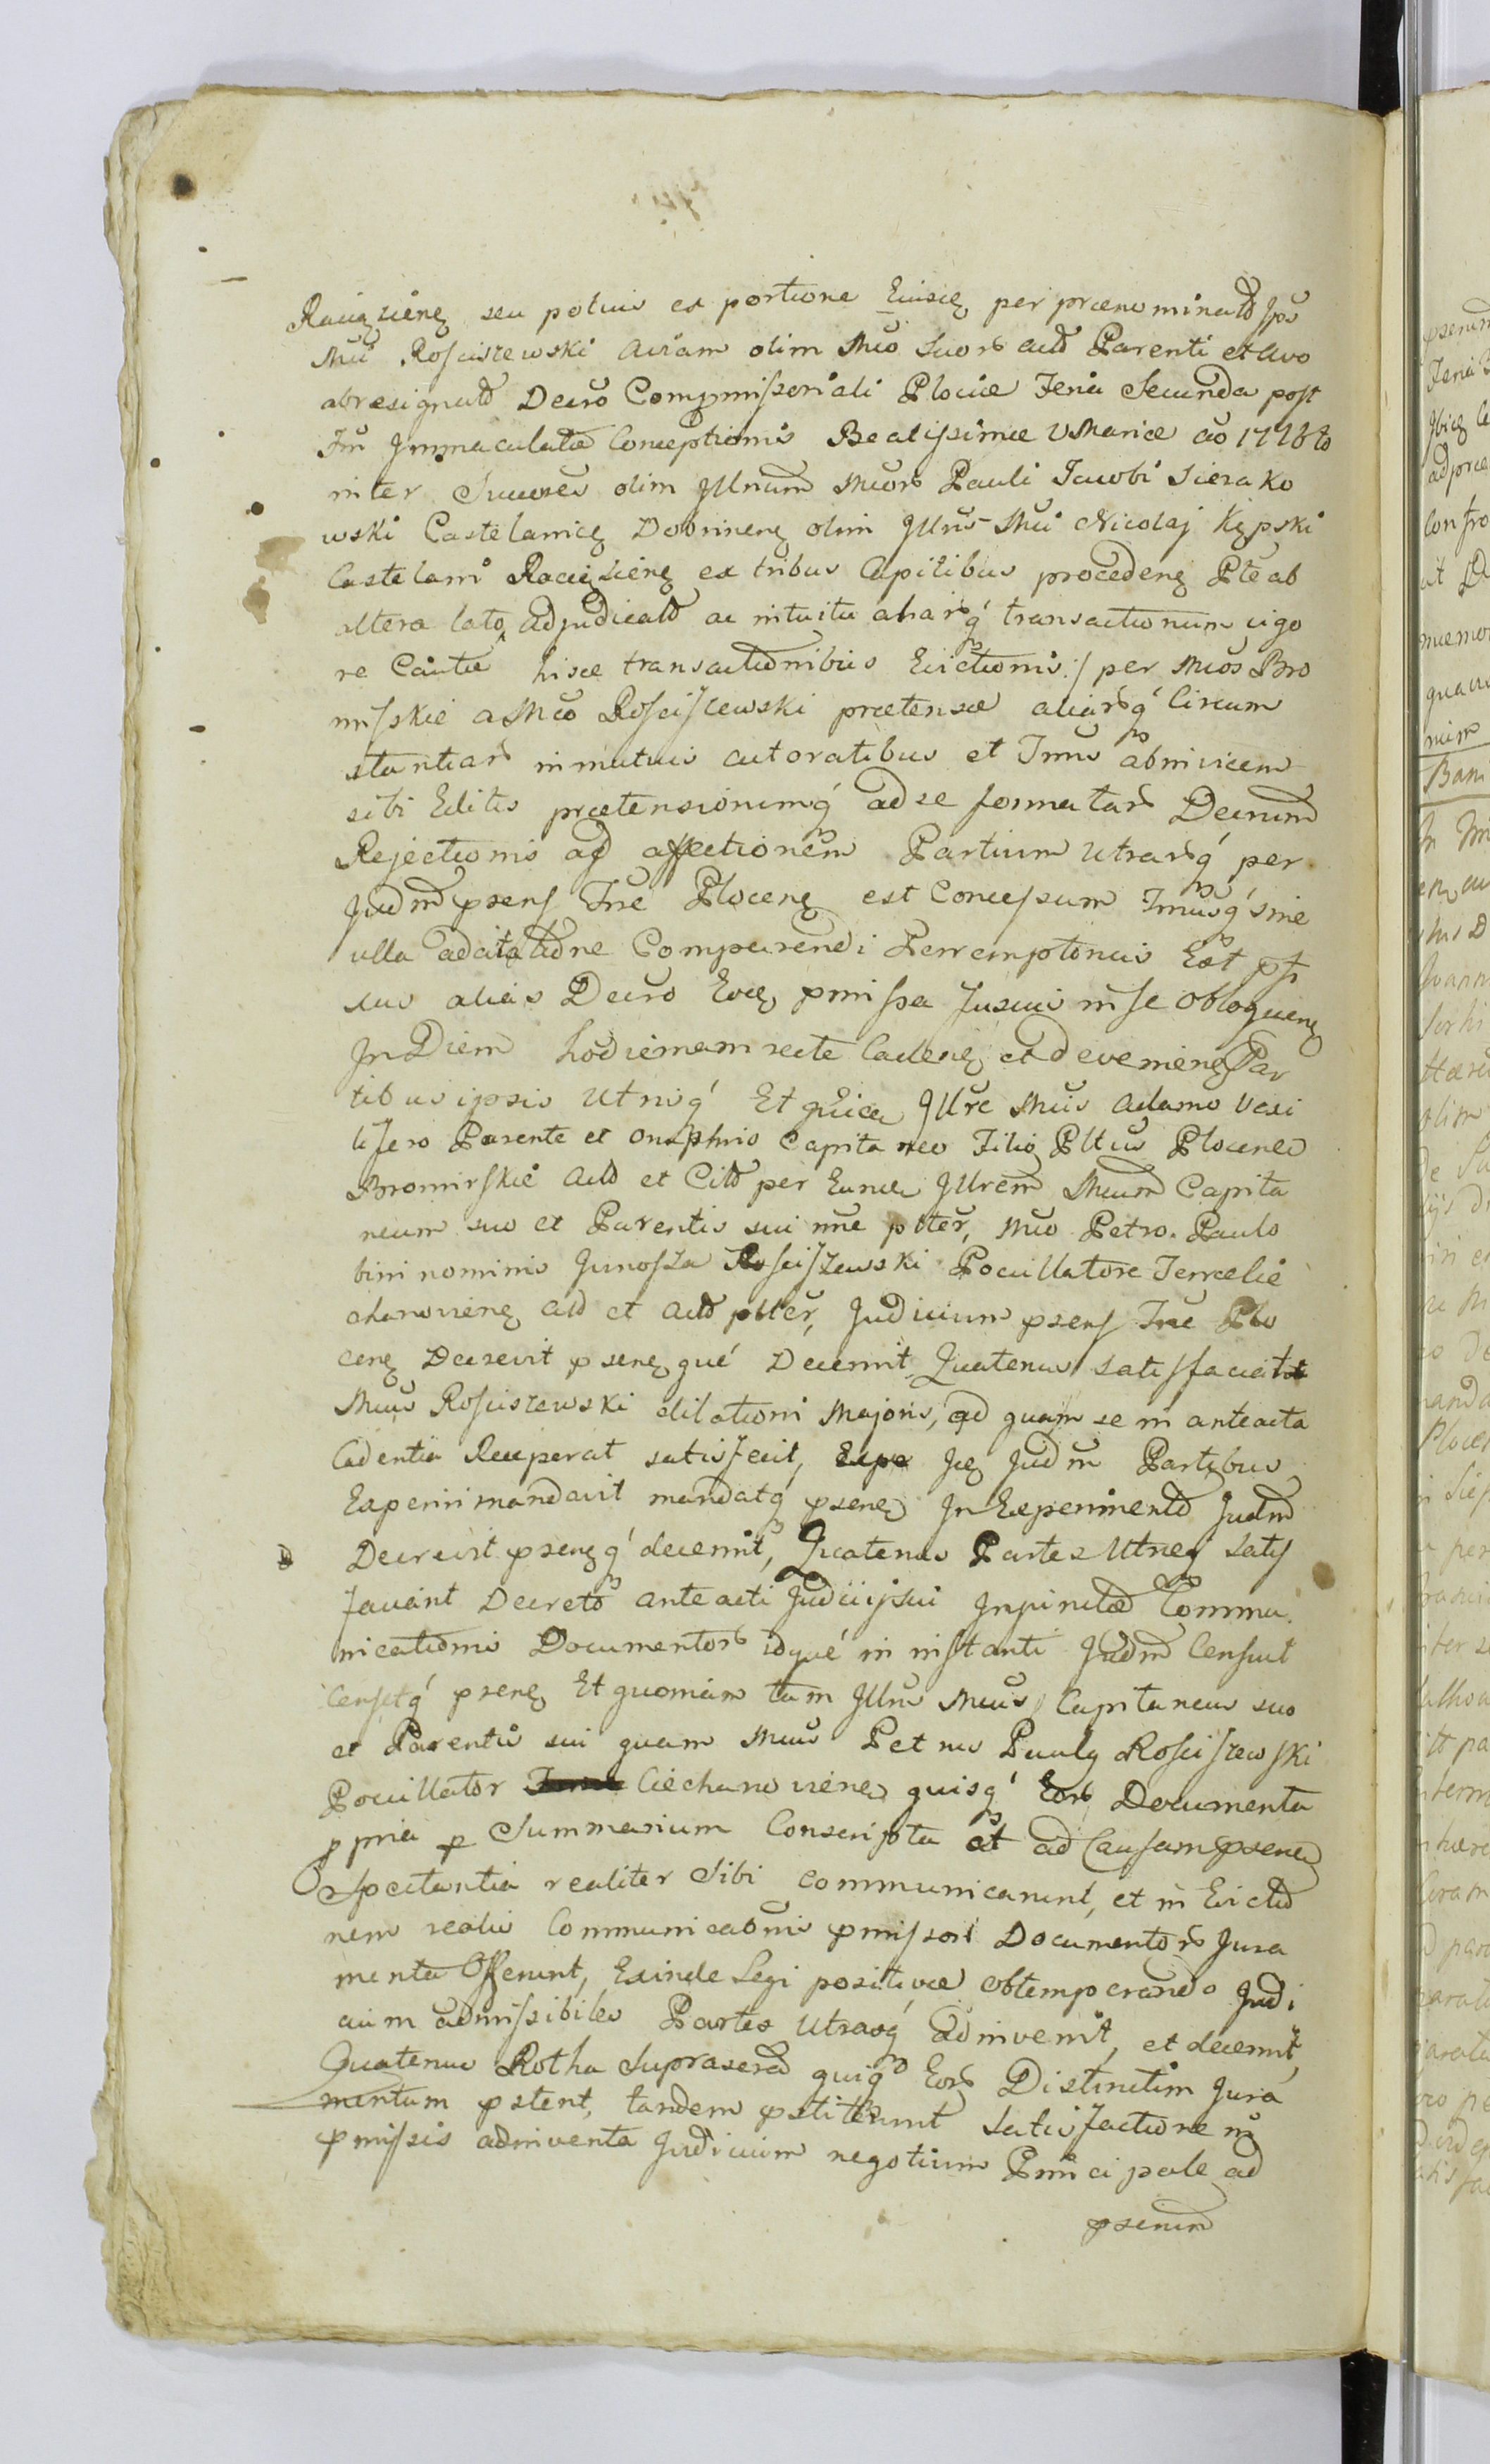 Raciązienę seu potius ex portione Eiusdę per prænominatd Ips
Mci Rosciszewski aviam olim Mco Suorb actd Parenti et Avo
abresignatd Decro Compmissoriali Plociæ Feria Secunda post
Fm Immaculatæ Conceptionis Beatissimæ VMariæ ao 1718to
inter Succres olim Illrium Mcorb Pauli Jacobi Sierako
wski Castelanicę Dobrinenę olim Illris Mci Nicolaj Kępski
Castelani Raciązienę ex tribus Capitibus procedenę Pte ab
altera lato adjudicatd ac intuitu aliarbq transactionum vigo
re Cautæ hisce transactionibus Evictionis :/ per Mcos Bro
mirskie a Mco Rosciszewski prætensæ aliarbq Circum
stantiarb in mutuis actoratibus et Trmis ab invicem
sibi Editis prætensionumq ad se formatarb Decrum
Rejectionis ad affectionem Partium Utrarbq per
Judm psens Tre Plocenę est Concessum Trmusq sine
ulla adcitatione Comparendi Perremptorius Est pfi
xus aliis Decro Eodę pmissa fusius in se obloquenę
In Diem hodiernam recte Cadenę et devenienę Par
tibus ipsis Utrisq Et quidem Illre Mcis Adamo Vexi
lifero Parente et Onuphrio Capitaneo Filio Pltus Plocenes
Bromirskie Actd et Citd per Eundę Illrem Mcum Capita
neum suo et Parentis sui nne plter, Mco Petro Paulo
bini nominis Junosza Rosciszewski Pocillatore Terræ Cie
chanovienę Citd et Actd plter, Judicium psens Tre Plo
cenę Decrevit psenęque Decernit, Quatenus satisfaciat
Mcus Rosciszewski dilationi Majoris, ad quam se in anteacta
Cadentia Receperat satisfecit, Expe Icę Judm Partibus
Experiri mandavit mandatq psenę In Experimento Judm
Decrevit psenęq decernit, Quatenus Partes Utreq satis
faciant Decreto anteacti Judicij sui In puncto Commu
nicationis Documentorb idque in instanti Judm Censuit
Censetq psenę Et quoniam tam Illris Mcus Capitaneus suo
et Parentis sui quam Mcus Petrus Paulus Rosciszewski
Pocillator Ciechanoviensis quisq Eorb Documenta
ppria p Summarium Conscripta et ad Causam psenę
Spectantia realiter Sibi communicarunt, et in Evictio
nem realis Communicationis pmissorb Documentorb Jura
menta Offerunt, Exinde Legi positivæ obtemperando Judi
cium admissibiles Partes Utrasq adinvenit, et decernit,
Quatenus Rotha Suprascrta quisq Eorb Distinctim Jura
mentum pstent, tandem pstiterunt Satisfactione in
pmissis adinventa Judicium negotium Principale ad
psenim